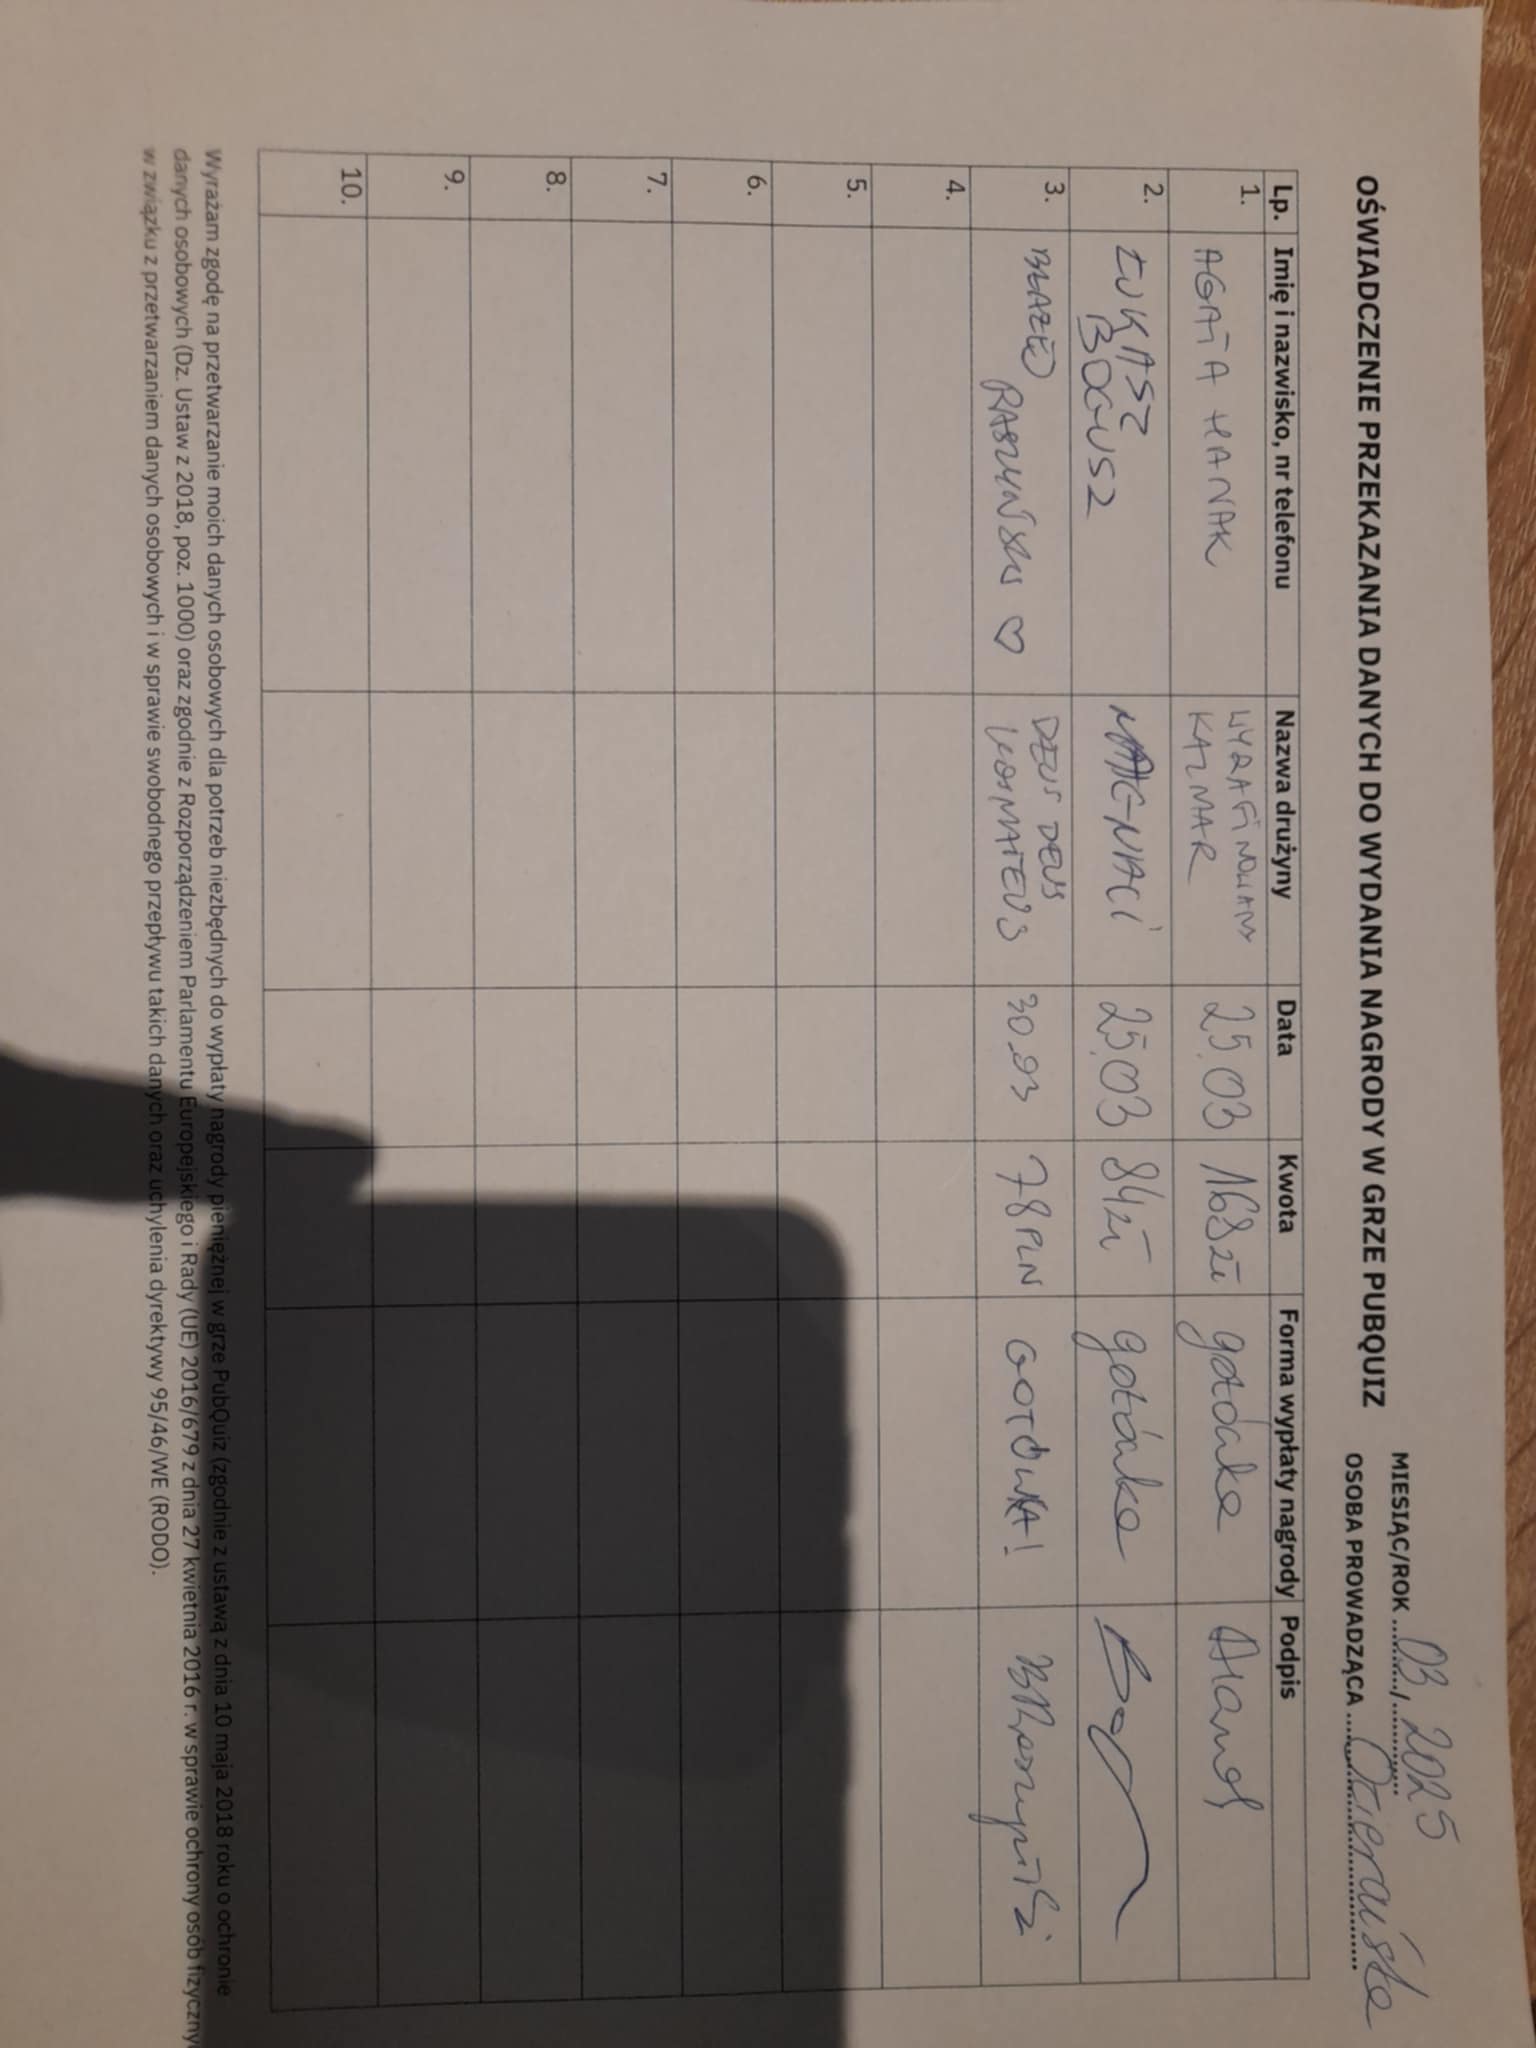 OŚWIADCZENIE PRZEKAZANIA DANYCH DO WYDANIA NAGRODY W GRZE PUBQUIZ
MIESIĄC/ROK ....03..../....2025....
OSOBA PROWADZĄCA
Lp. Imię i nazwisko, nr telefonu Nazwa drużyny Data Kwota Forma wypłaty nagrody Podpis
1. AGATA HANAK WYRAFINOWANY KAZMAR 25.03 168zł gotówka
2. ŁUKASZ BOGUSZ MAGNACI 25.03 84zł gotówka
3. BŁAŻEJ RASZYŃSKI ♡ DEUS DEUS KOSMATEUS 30.03 78 PLN GOTÓWKA!
4.
5.
6.
7.
8.
9.
10.
Wyrażam zgodę na przetwarzanie moich danych osobowych dla potrzeb niezbędnych do wypłaty nagrody pieniężnej w grze PubQuiz (zgodnie z ustawą z dnia 10 maja 2018 roku o ochronie
danych osobowych (Dz. Ustaw z 2018, poz. 1000) oraz zgodnie z Rozporządzeniem Parlamentu Europejskiego i Rady (UE) 2016/679 z dnia 27 kwietnia 2016 r. w sprawie ochrony osób fizyczny
w związku z przetwarzaniem danych osobowych i w sprawie swobodnego przepływu takich danych oraz uchylenia dyrektywy 95/46/WE (RODO).